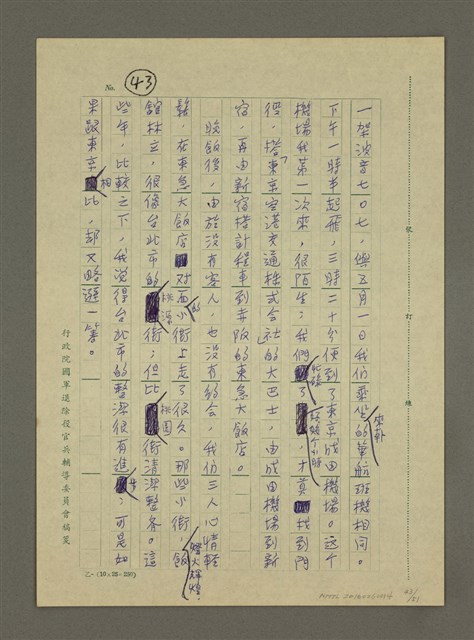 No. 43
一架波音七〇七，與五月一日我們乘坐來韓的華航班機相同。
下午一時半起飛，三時二十分便到了東京成田機場。這个
機場我第一次來，很陌生；我們忙碌了好幾个小時，才莫找到門
徑，搭東京空港交通株式会社的大巴士，由成田機場到新
宿，再由新宿搭計程車到赤阪的東急大飯店。
晚飯後，由於沒有客人，也沒有約会，我們三人心情輕
鬆，在東急大飯店对面的小街上走了很久。那些小街，燈火輝煌，飯
館林立，很像台北市的桃源街；但比桃園街清潔整齐。這
些年，比較之下，我覺得台北市的整潔很有進步；可是如
果跟東京相比，却又略遜一筹。
裝 訂 線
行政院國軍退除役官兵輔導委員會稿箋
乙-(10×25=250)